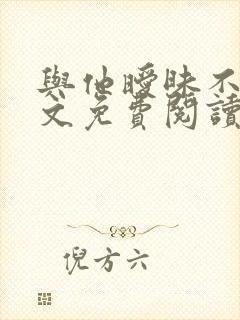 與他曖昧不
文免費閱讀
倪方六